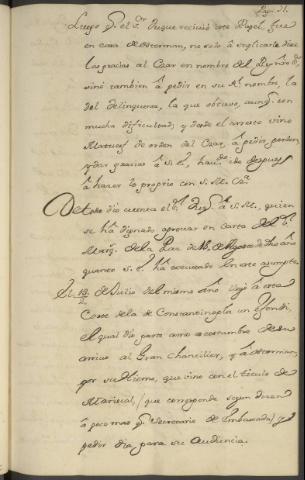 Luego q.e el s.or Duque recivió este Papel, fue
en casa de Osterman, no solo á explicarle diese
las gracias al Czar en nombre del Rey n̄ro s.r
sino tambien á pedir en su R.l nombre, la
del delinquente, la que obtuvo, aunq.e con
mucha dificultad; y desde el arresto vino
de orden del Czar, á pedir perdon,
y dar gracias á S.E., hav.do ido despues
á hazer lo proprio con S.M. Cz.a
De este dia cuenta el s.r Duq.e á S.M., quien
se há dignado aprovar en carta del s.r
Marq.s de la Paz de de Agosto de dho año
quanto S.E. há executado en este asumpto.
El de Julio del mismo año llegó á esta
Corte de la de Constantinopla un Efendi,
el qual dio parte como acostumbra de su
arrivo al Gran Chanciller, y á Osterman,
por su que vino con el titulo de
Mariscal, (que corresponde segun dizen
á poco mas q.e Secretario de Embaxada) y á
pedir dia para su Audiencia.